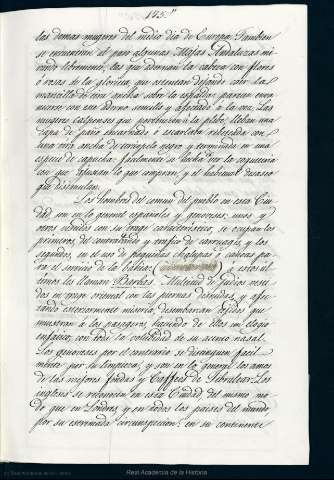 125."
las demas mugeres del medio dia de Europa. Tambien
se encuentran al paso algunas Majas Andaluzas mi-
rando libremente, las que adornan la cabeza con flores
ó rosas de la
mantilla de tira ancha sobre la espalda; parecen
con su adorno sencillo y afectado á la vez. Las
mugeres que pertenecen á la plebe, llevan una
capa de paño encarnado ó escarlata ribeteada con
una tira ancha de terciopelo negro y terminada en una
especie de capucha; facilmente se
con que
que distinguen.
Los hombres del comun del pueblo en esta Ciu-
dad son en lo general españoles y genoveses: unos y
otros vestidos con su trage caracteristico, se ocupan los
primeros del contrabando y trafico de carruages y los
segundos, en el uso de pequeñas chalupas ó canoas pa-
ra el servicio de la bahia: á estos úl-
timos la llaman Barkas. Multitud de Judios vesti-
dos en trage oriental con las piernas desnudas, y afec-
tando esteriormente miseria, desembarcan tegidos que
muestran á los pasageros, haciendo de ellos un elogio
enfatico, con toda la volubilidad de su acento nasal.
Los genoveses por el contrario se distinguen facil-
mente por su limpieza; y son en lo general los amos
de las mejores fondas y Caffeés de Gibraltar. Los
ingleses se reconocen en esta Ciudad, del mismo mo-
do que en Londres y en todos los paises del mundo
por su estremada circunspeccion: en su continente
Real Academia de la Historia